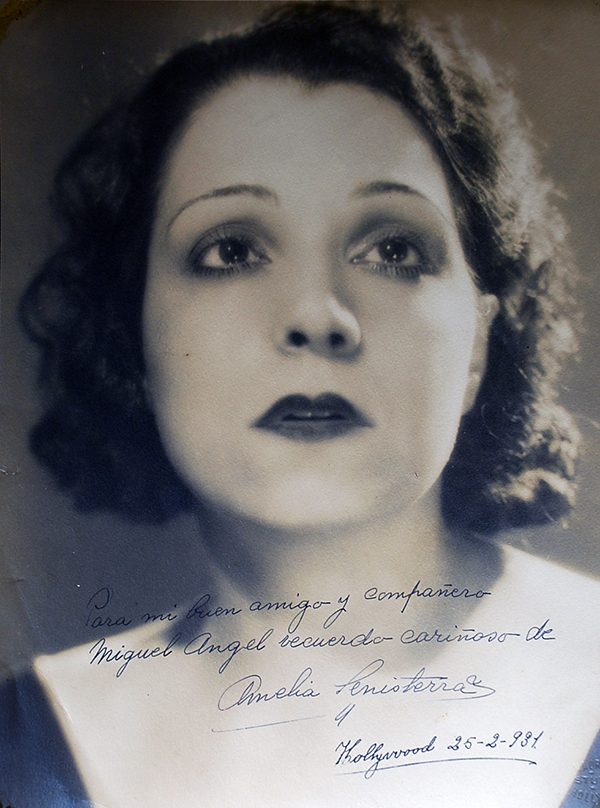 Para mi buen amigo y compañero
Miguel Angel recuerdo cariñoso de
Amelia Senisterra
Hollywood 25-2-931